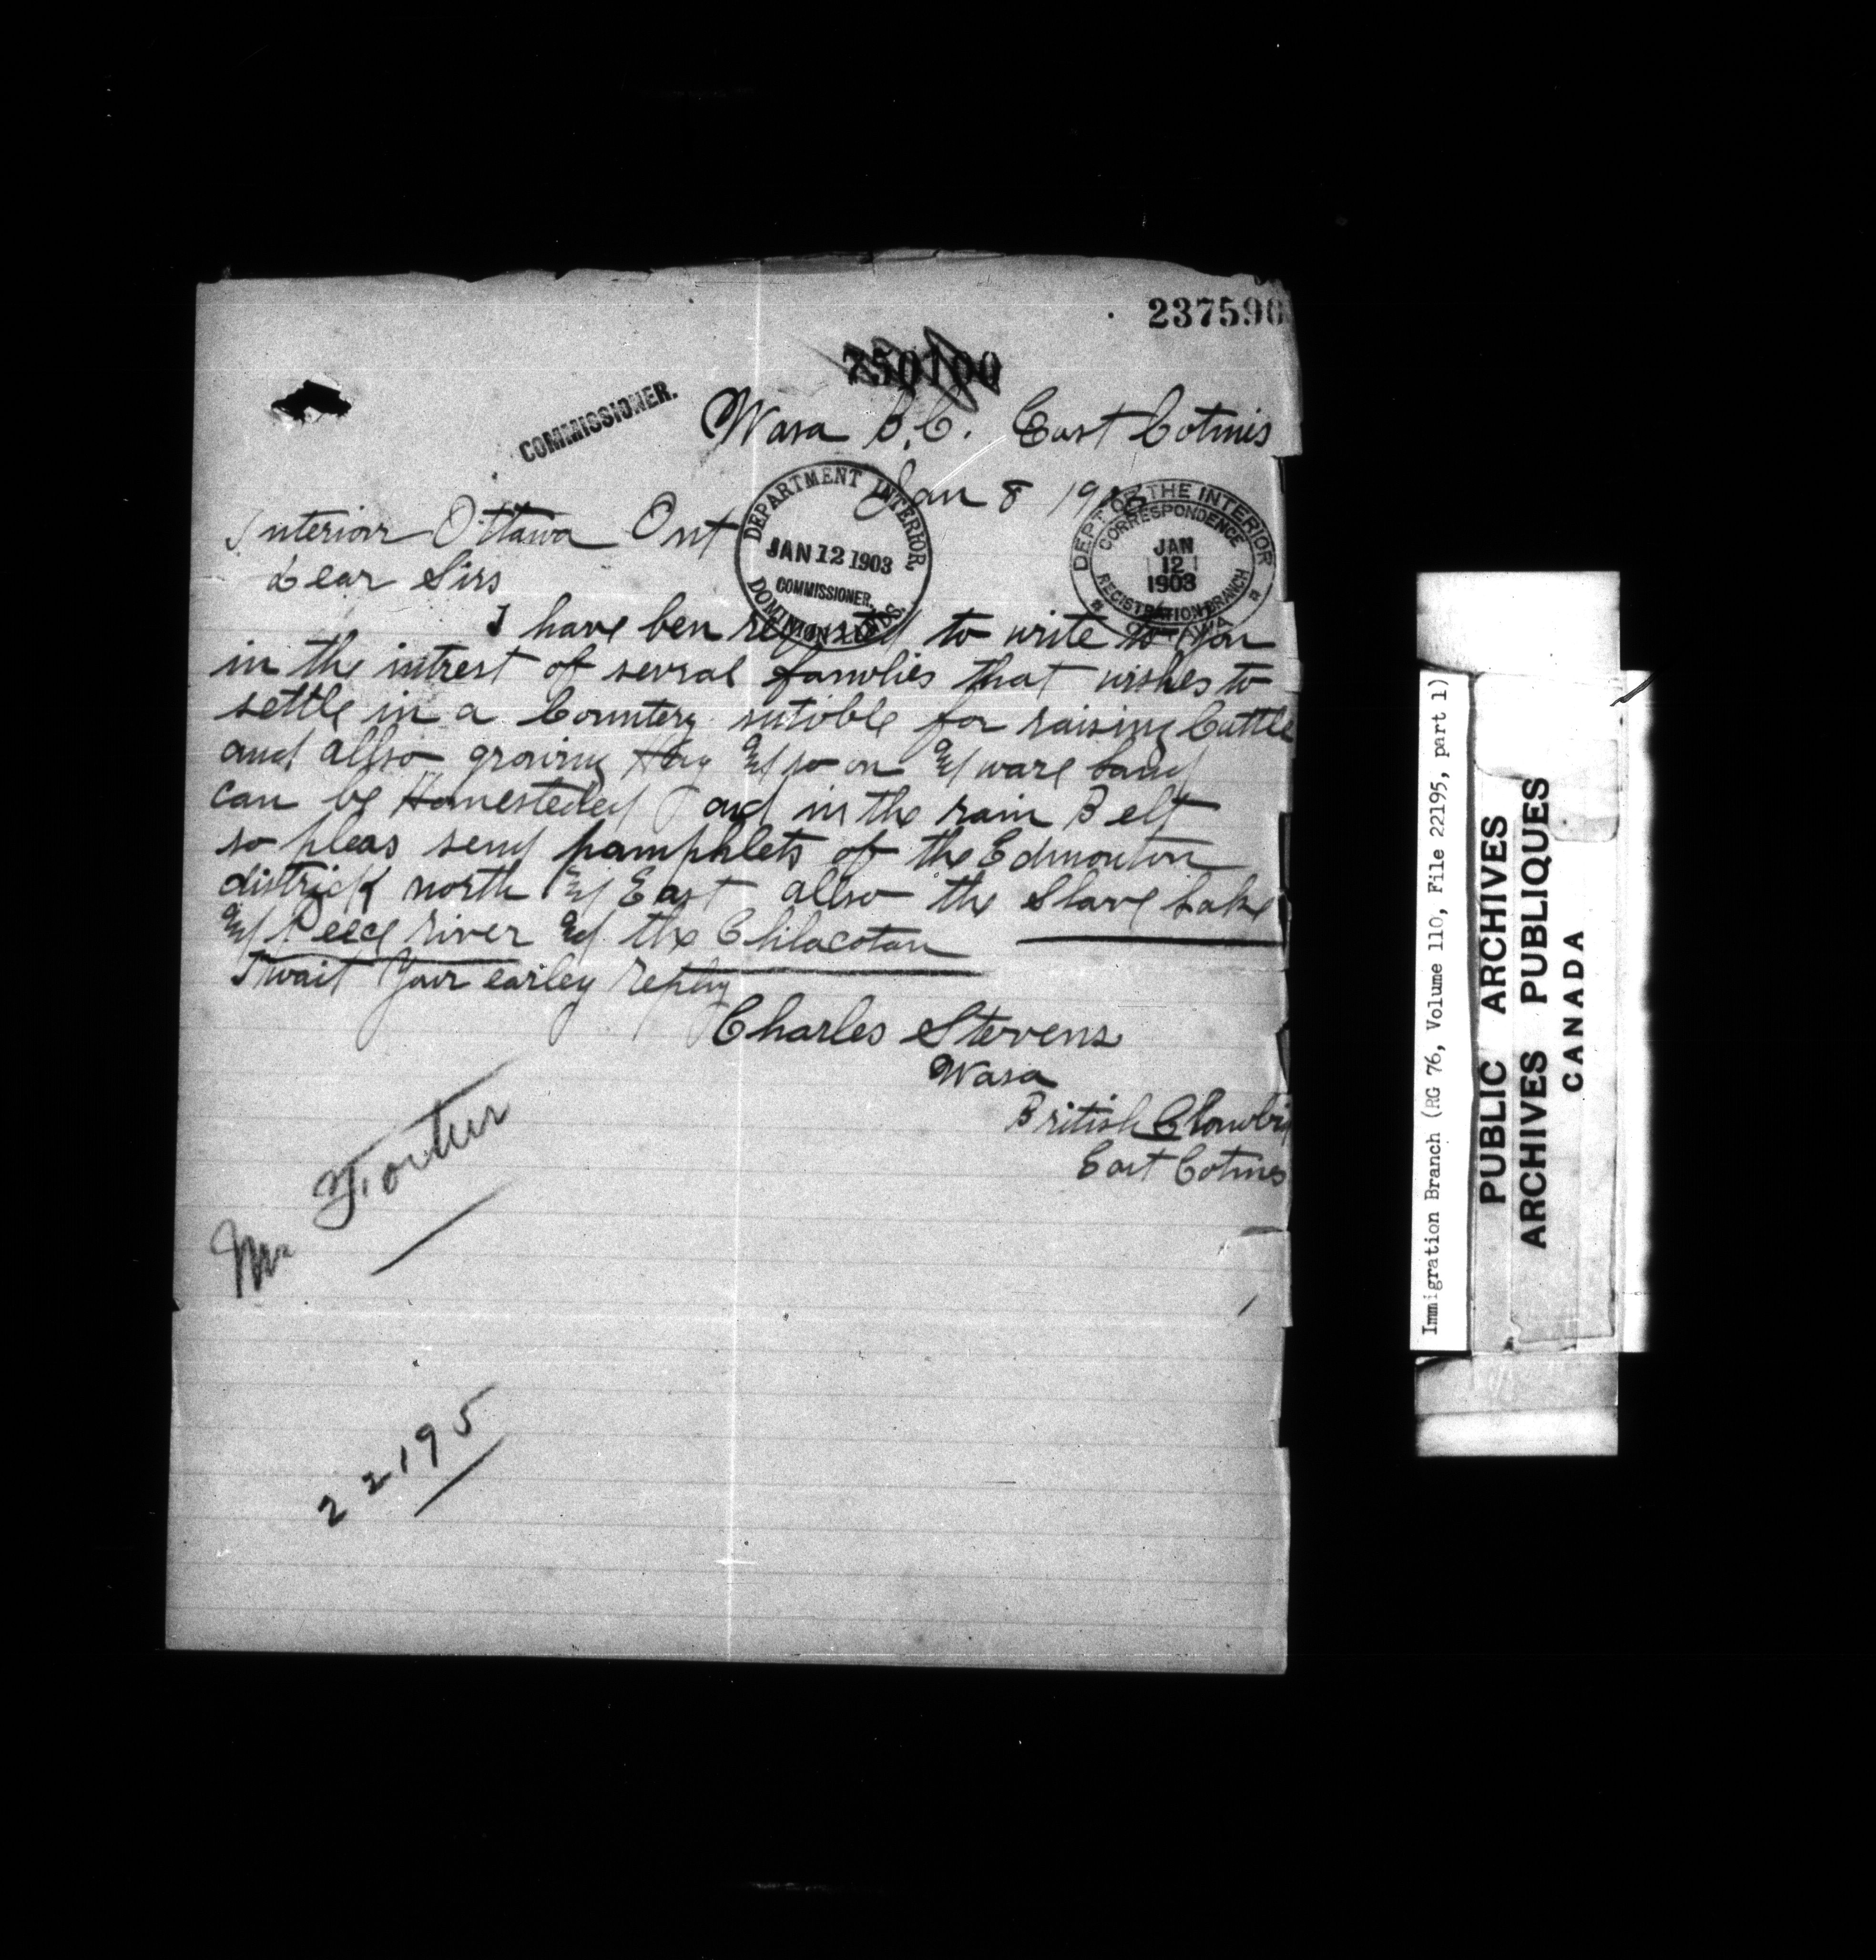 237590
750100
COMMISSIONER.
Wasa B.C. East Cotnis
Jan 8 1903
DEPARTMENT INTERIOR.
JAN 12 1903
COMMISSIONER,
DOMINION LANDS.
DEPT OF THE INTERIOR
CORRESPONDENCE
JAN
12
1903
REGISTRATION BRANCH
OTTAWA
Interior Ottawa Ont
Dear Sirs
I have ben requested to write to You
in the intrest of sevral families that wishes to
settle in a Countery sutible for raising Cattle
and allso growing Hay & so on & ware Land
can be Homesteded and in the rain Belt
so pleas send pamphlets of the Edmonton
districk north & East allso the Slave Lake
& Peece river & the Chilacotan
I wait Your earley reply
Charles Stevens
Wasa
British Clombia
East Cotnes
Mr
22195
Immigration Branch (RG 76, Volume 110, File 22195, part 1)
PUBLIC ARCHIVES
ARCHIVES PUBLIQUES
CANADA